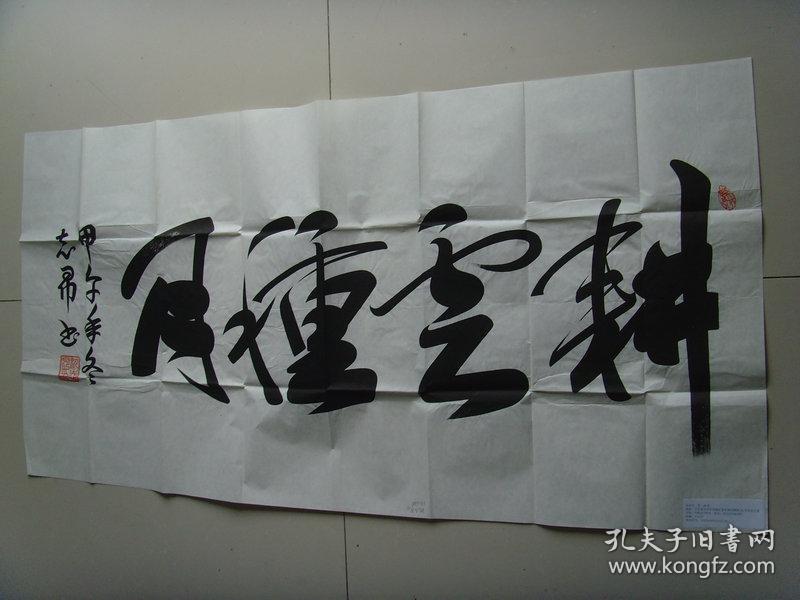 耕雲種月
甲午年冬
志昂书
孔夫子旧书网
www.kongfz.com